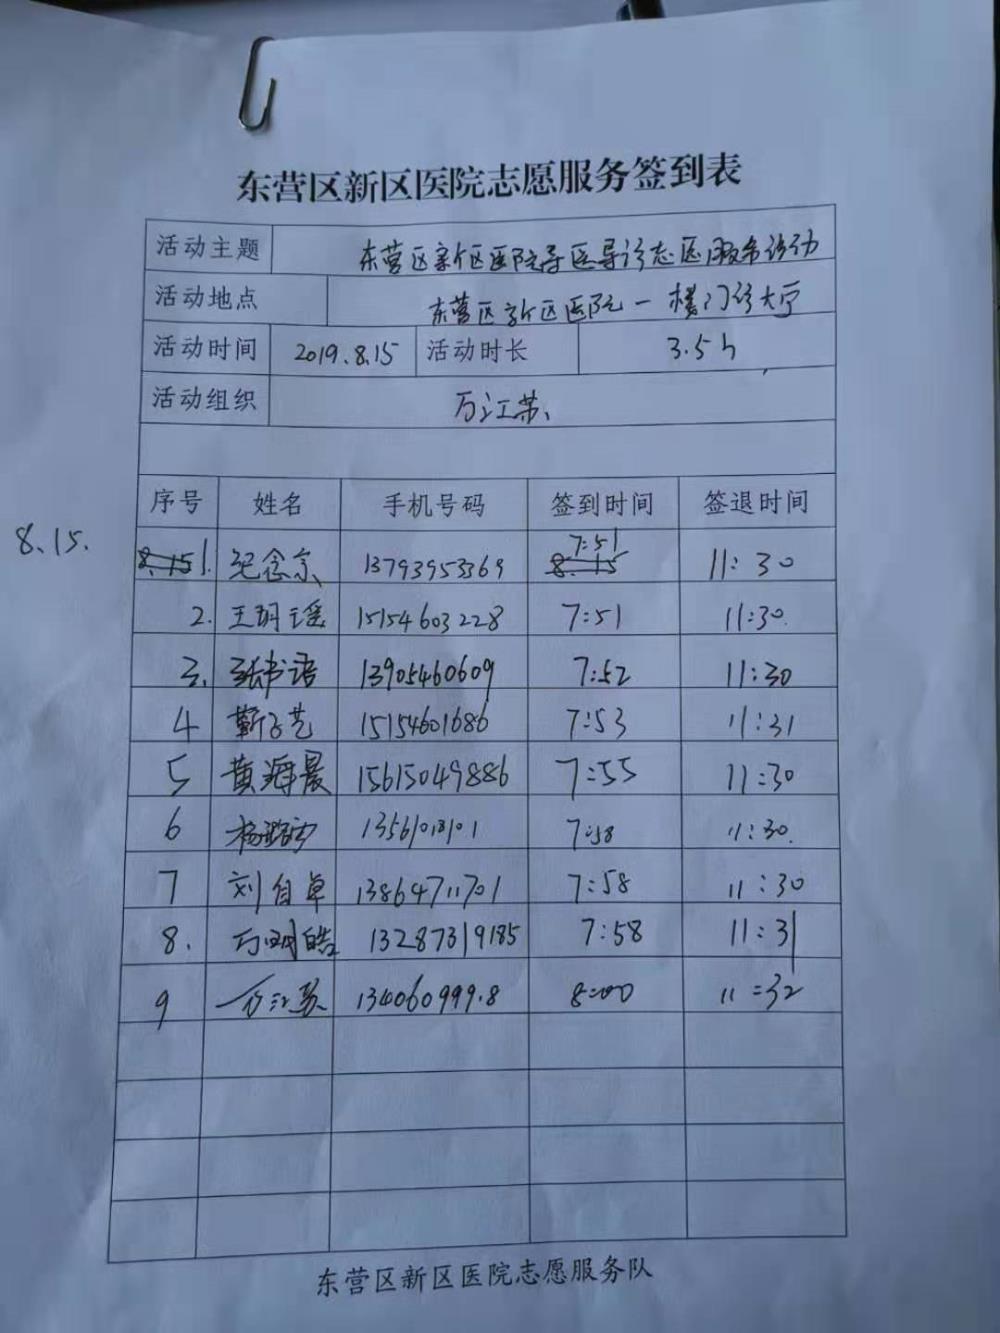 东营区新区医院志愿服务签到表
活动主题 东营区新区医院导医导诊志医服务活动
活动地点 东营区新区医院一楼门诊大厅
活动时间 2019.8.15 活动时长 3.5h
活动组织 万江苏
序号 姓名 手机号码 签到时间 签退时间
8.15.
1. 纪念宗 13793953369 7:51 11:30
2. 王玥瑶 15154603228 7:51 11:30.
3. 张书语 13905460609 7:52 11:30
4 靳子艺 15154601686 7:53 11:31
5 黄海晨 15615049886 7:55 11:30
6 7:58 11:30.
7 刘自卓 13864711701 7:58 11:30
8. 万明皓 13287319185 7:58 11:31
9 万江苏 8:00 11:32
东营区新区医院志愿服务队